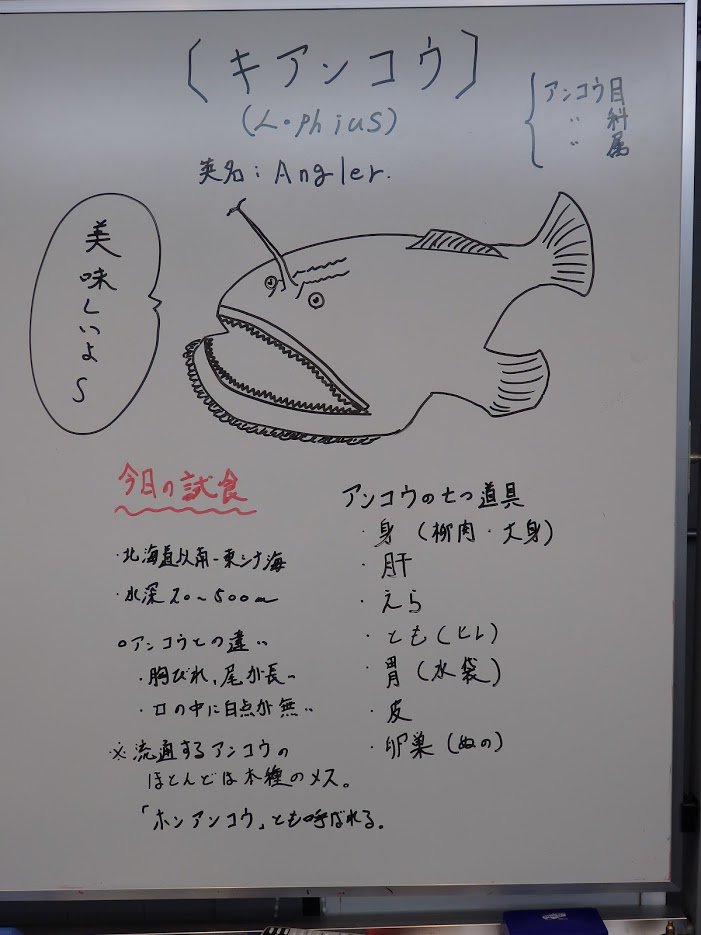 〔キアンコウ〕
(Lophius)
英名：Angler.
アンコウ目
〃 科
〃 属
美味しいよ〜
今日の試食
・北海道以南-東シナ海
・水深20〜500m
○アンコウとの違い
・胸びれ、尾が長い
・口の中に白点が無い
※流通するアンコウの
ほとんどは本種のメス。
「ホンアンコウ」とも呼ばれる。
アンコウの七つ道具
・身（柳肉・大身）
・肝
・えら
・とも(ヒレ)
・胃(水袋)
・皮
・卵巣(ぬの)